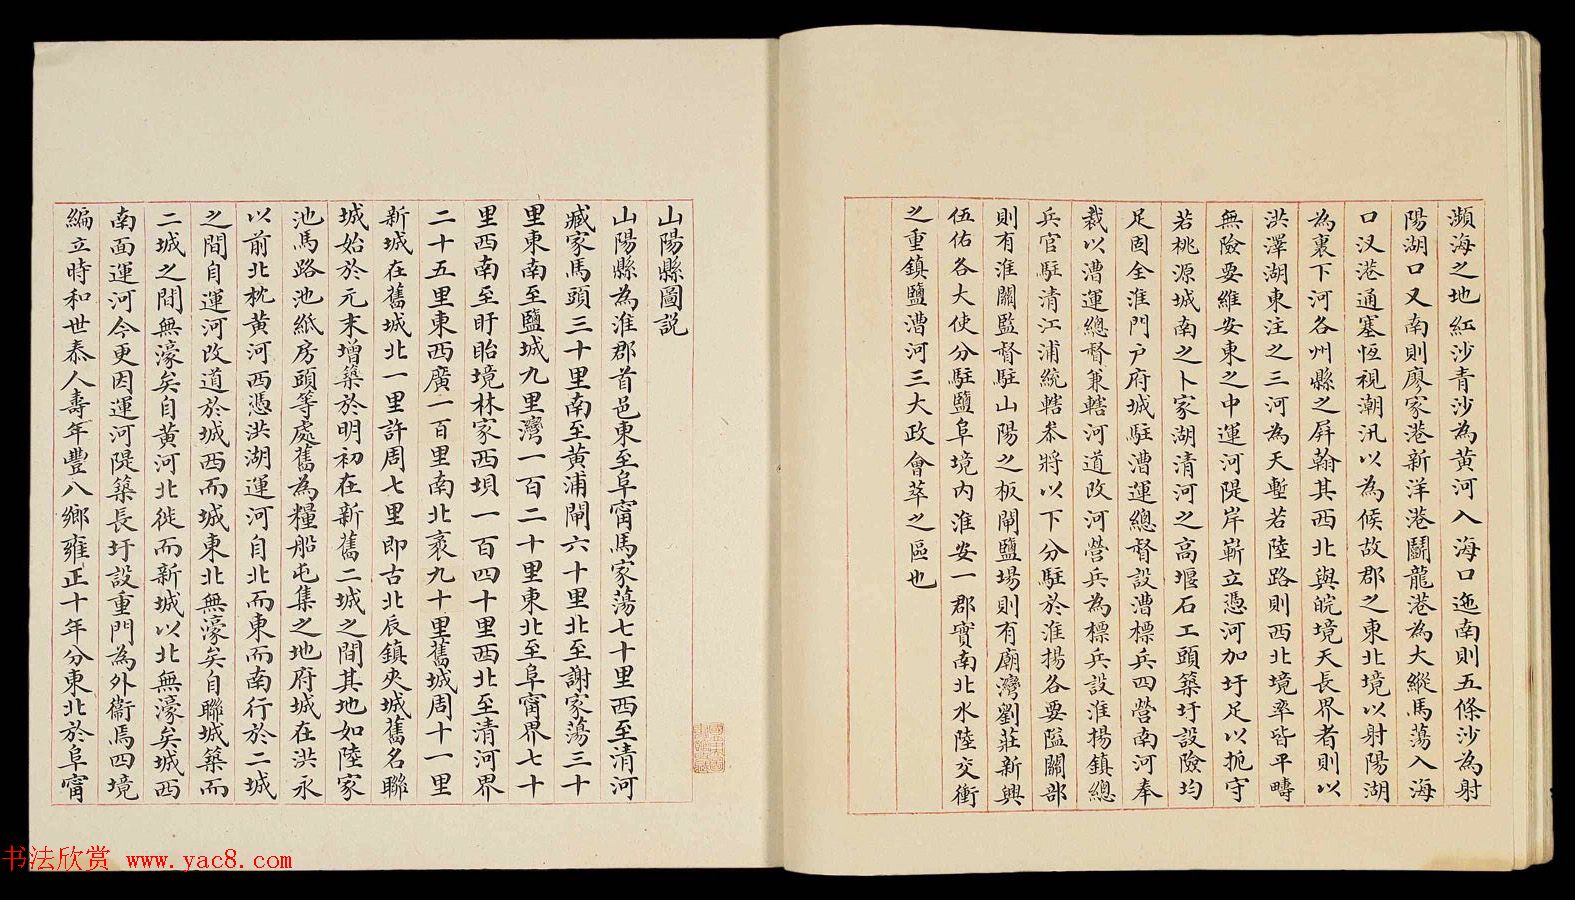 瀕海之地紅沙青沙為黃河入海口迤南則五條沙為射
陽湖口又南則廖家港新洋港鬬龍港為大縱馬蕩入海
口汊港通塞恆視潮汛以為候故郡之東北境以射陽湖
為裏下河各州縣之屏翰其西北與皖境天長界者則以
洪澤湖東注之三河為天塹若陸路則西北境率皆平疇
無險要維安東之中運河隄岸嶄立憑河加圩足以扼守
若桃源城南之卜家湖清河之高堰石工頭築圩設險均
足固全淮門戶府城駐漕運總督設漕標兵四營南河奉
裁以漕運總督兼轄河道改河營兵為標兵設淮揚鎮總
兵官駐清江浦統轄叅將以下分駐於淮揚各要隘關部
則有淮關監督駐山陽之板閘鹽場則有廟灣劉莊新興
伍佑各大使分駐鹽阜境內淮安一郡實南北水陸交衝
之重鎮鹽漕河三大政會萃之區也
山陽縣圖說
山陽縣為淮郡首邑東至阜甯馬家蕩七十里西至清河
臧家馬頭三十里南至黃浦閘六十里北至謝家蕩三十
里東南至鹽城九里灣一百二十里東北至阜甯界七十
里西南至盱眙境林家西壩一百四十里西北至清河界
二十五里東西廣一百里南北袤九十里舊城周十一里
新城在舊城北一里許周七里即古北辰鎮夾城舊名聯
城始於元末增築於明初在新舊二城之間其地如陸家
池馬路池紙房頭等處舊為糧船屯集之地府城在洪永
以前北枕黃河西憑洪湖運河自北而東而南行於二城
之間自運河改道於城西而城東北無濠矣自聯城築而
二城之間無濠矣自黃河北徙而新城以北無濠矣城西
南面運河今更因運河隄築長圩設重門為外衞焉四境
編立時和世泰人壽年豐八鄉雍正十年分東北於阜甯
书法欣赏 www.yac8.com